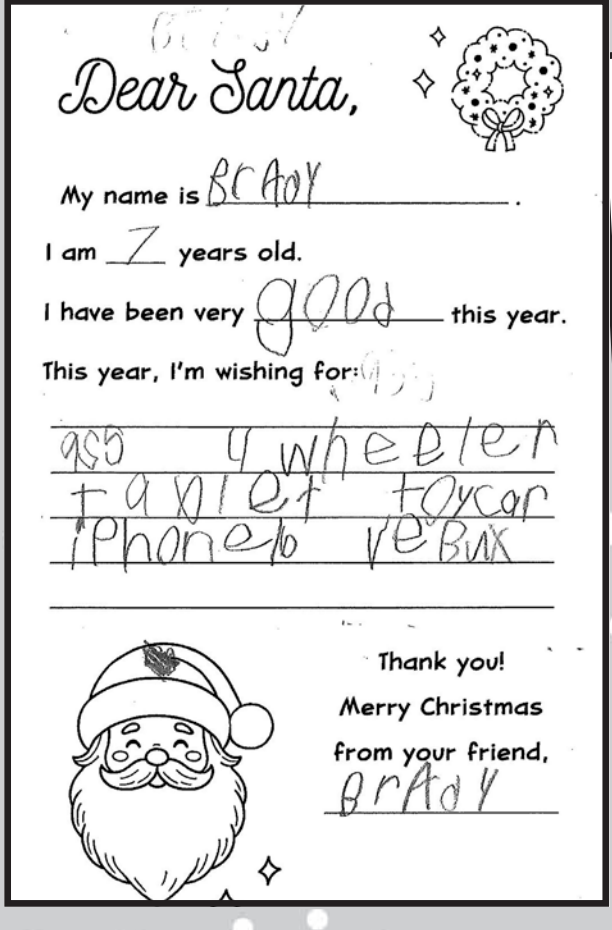 Brady
Dear Santa,
My name is BrAdY.
I am 7 years old.
I have been very good this year.
This year, I'm wishing for:
4 wheeler
tablet toycar
iPhone16 veBux
Thank you!
Merry Christmas
from your friend,
BrAdY